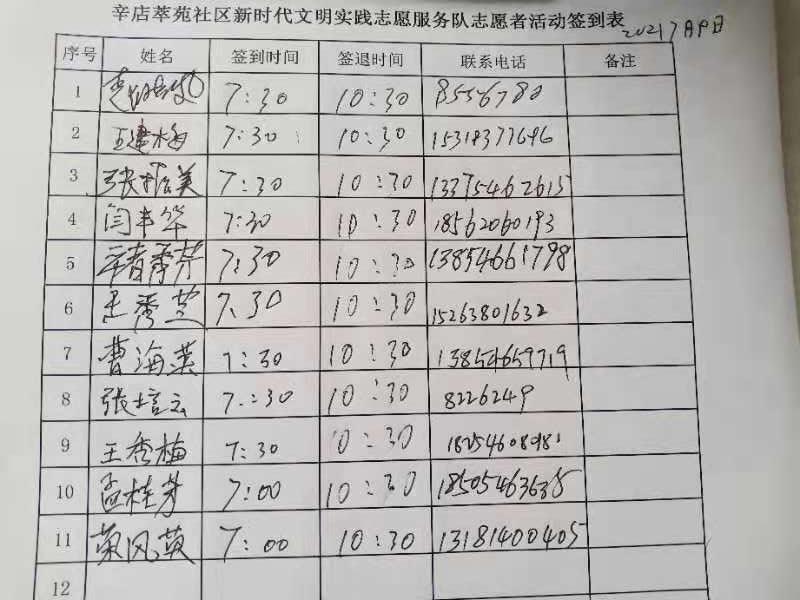 辛店萃苑社区新时代文明实践志愿服务队志愿者活动签到表 2021 7月9日
序号 姓名 签到时间 签退时间 联系电话 备注
1 7:30 10:30 8556780
2 王建梅 7:30 10:30 15318377696
3 张振美 7:30 10:30 13375462615
4 闫丰华 7:30 10:30 18562060193
5 辛春香芬 7:30 10:30 13854661798
6 王秀兰 7.30 10:30 15263801632
7 曹海英 7:30 10:30 13854659719
8 张培云 7:30 10:30 8226249
9 王秀梅 7:30 10:30 18254608981
10 孟桂芳 7:00 10:30 18505463635
11 荣风英 7:00 10:30 13181400405
12